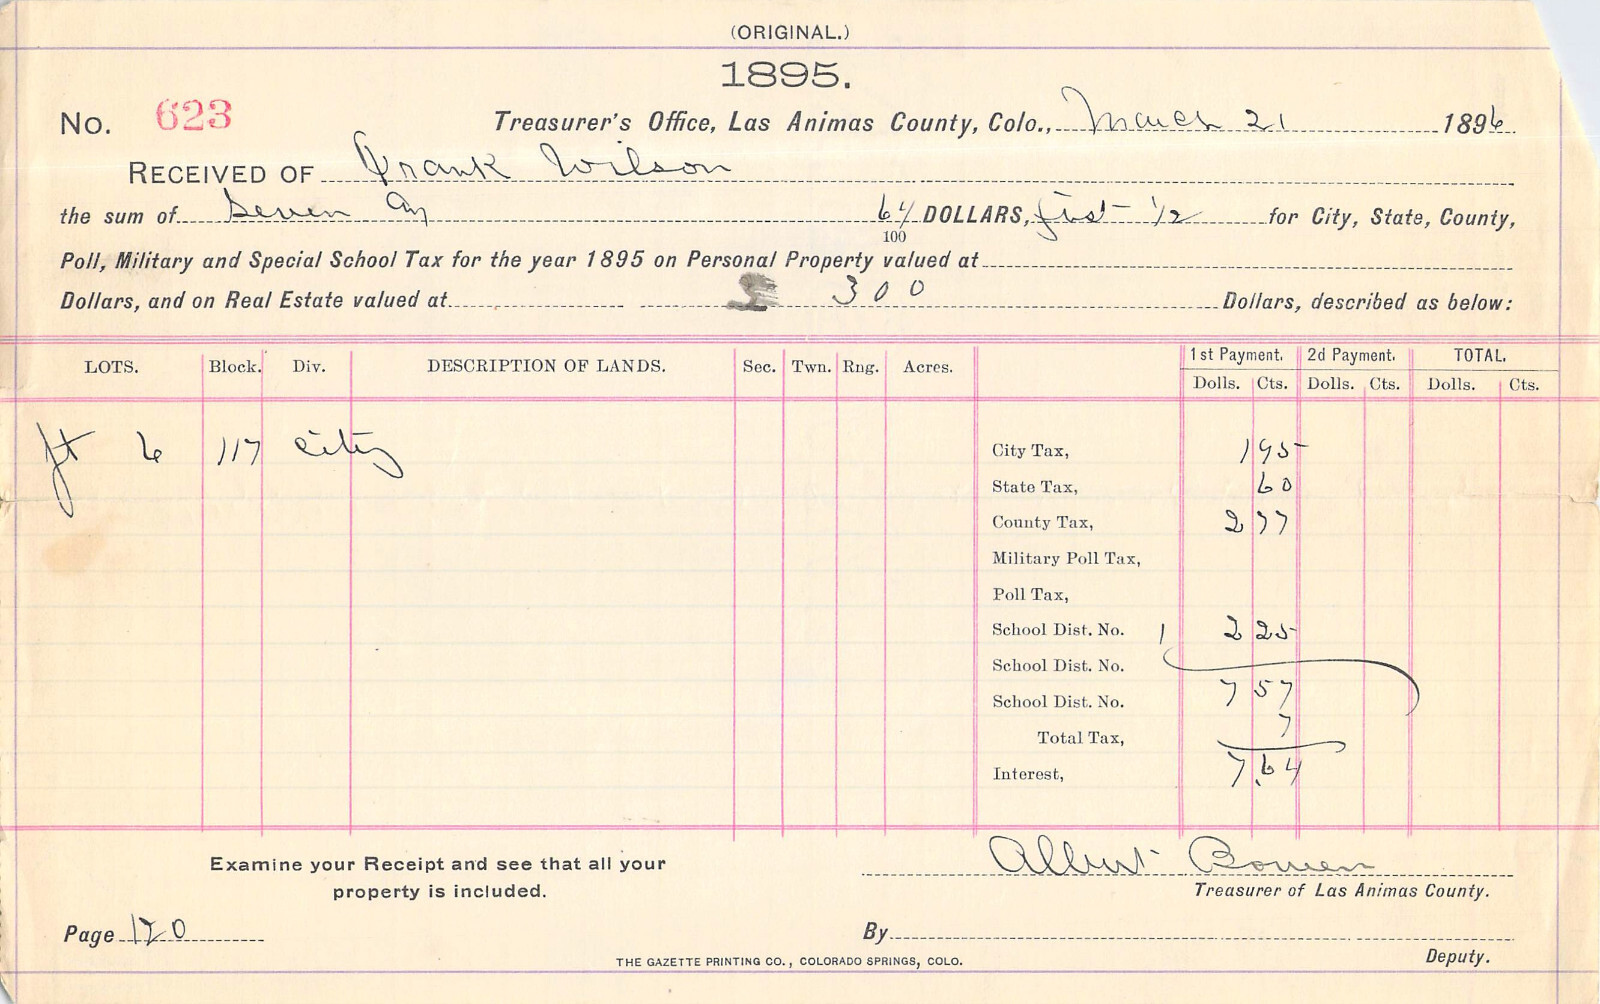 (ORIGINAL.)
1895.
No. 623 Treasurer's Office, Las Animas County, Colo., March 21 1896.
RECEIVED OF Frank Wilson
the sum of Seven & 64/100 DOLLARS, first 1/2 for City, State, County,
Poll, Military and Special School Tax for the year 1895 on Personal Property valued at
Dollars, and on Real Estate valued at 300 Dollars, described as below:
LOTS. Block. Div. DESCRIPTION OF LANDS. Sec. Twn. Rng. Acres. 1st Payment. 2d Payment. TOTAL.
Dolls. Cts. Dolls. Cts. Dolls. Cts.
pt 6 117 City City Tax, 1 95
State Tax, 60
County Tax, 2 77
Military Poll Tax,
Poll Tax,
School Dist. No. 1 2 25
School Dist. No.
School Dist. No. 7 57
Total Tax, 7
Interest, 7.64
Examine your Receipt and see that all your
property is included.
Albert Bowen
Treasurer of Las Animas County.
Page 120 By
Deputy.
THE GAZETTE PRINTING CO., COLORADO SPRINGS, COLO.